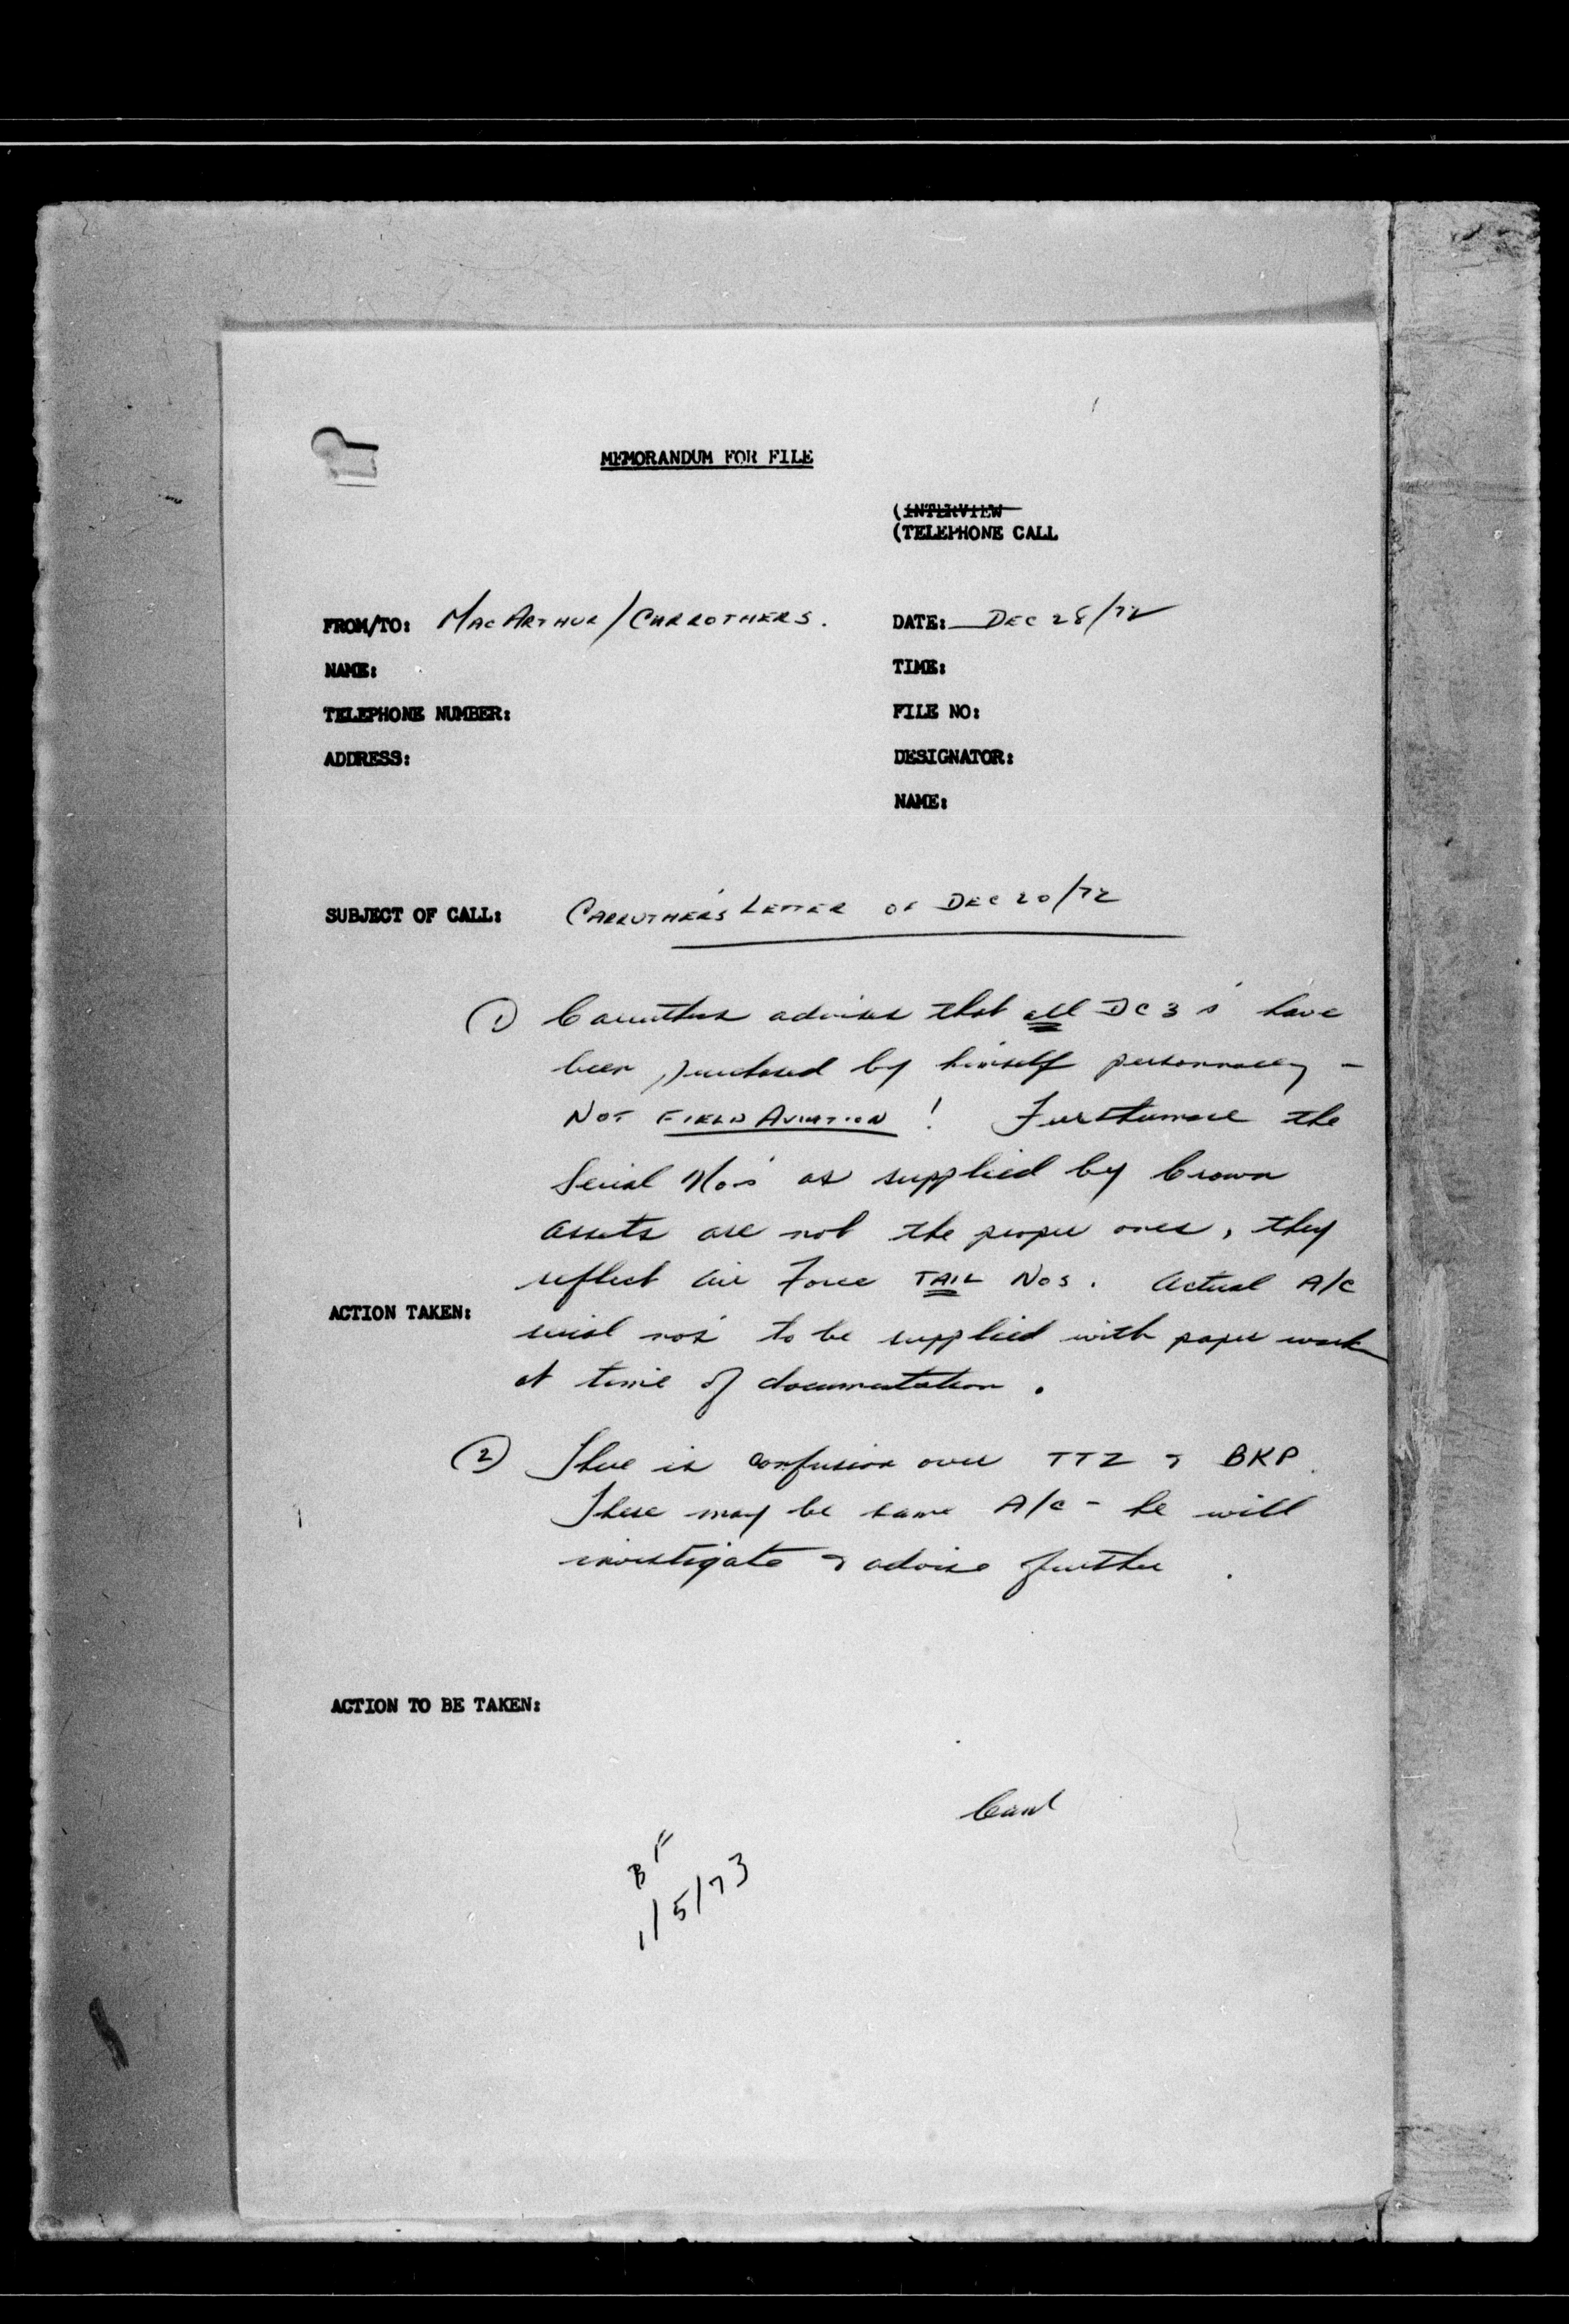 MEMORANDUM FOR FILE
(INTERVIEW
(TELEPHONE CALL
FROM/TO: MACARTHUR/CARROTHERS. DATE: DEC 28/72
NAME: TIME:
TELEPHONE NUMBER: FILE NO:
ADDRESS: DESIGNATOR:
NAME:
SUBJECT OF CALL: CARRUTHER'S LETTER OF DEC 20/72
(1) Carruthers advises that all DC3's have
been purchased by himself personnally -
NOT FIELD AVIATION! Furthermore the
Serial No's as supplied by Crown
assets are not the proper ones, they
reflect Air Force TAIL Nos. Actual A/C
ACTION TAKEN:
serial nos' to be supplied with paper work
at time of documentation.
(2) There is confusion over TTZ & BKP.
These may be same A/C - he will
investigate & advise further.
ACTION TO BE TAKEN:
BF
1/5/73